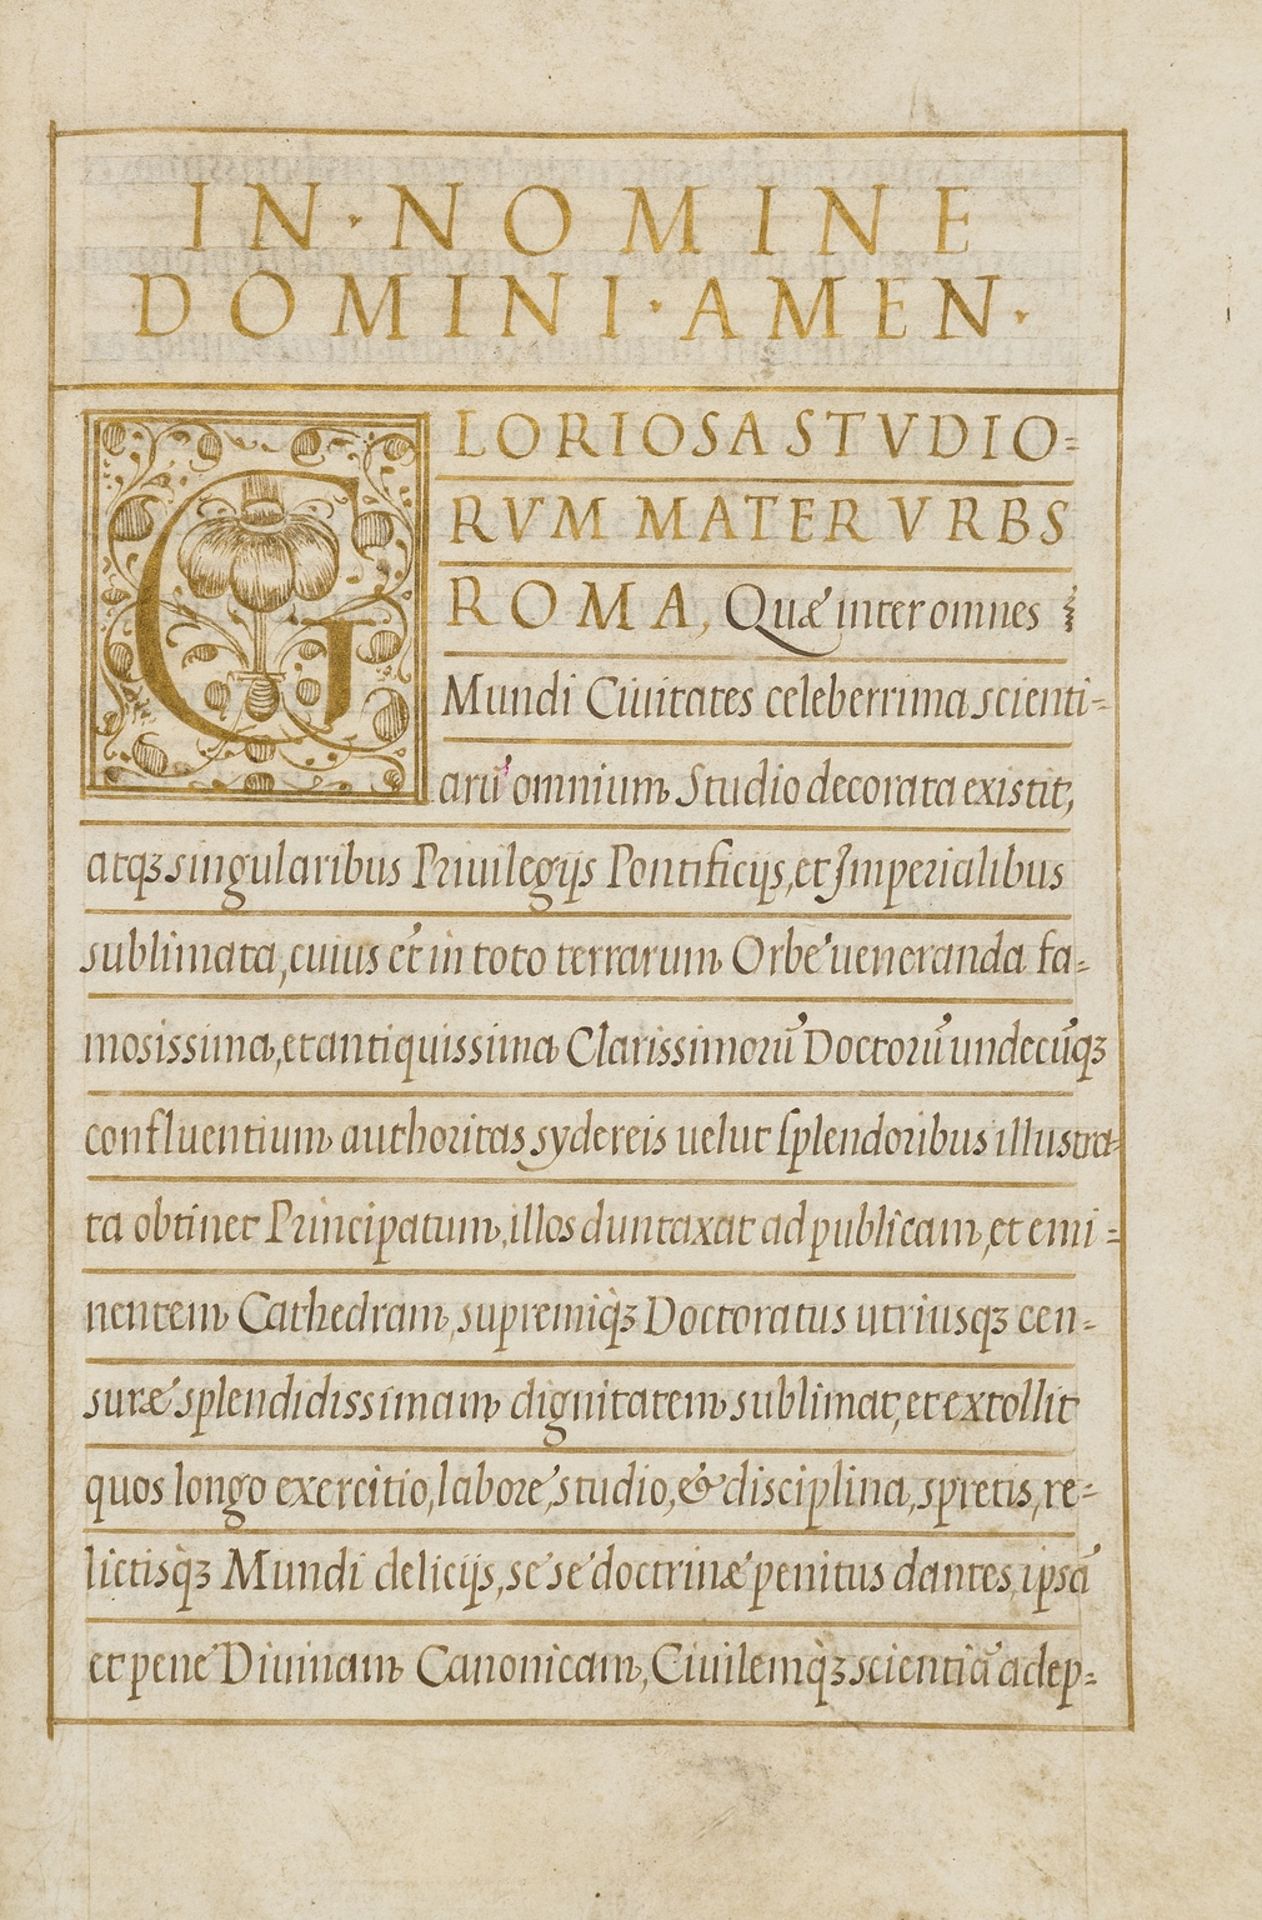 IN · NOMINE
DOMINI · AMEN ·
GLORIOSA STVDIO=
RVM MATER VRBS
ROMA, Quæ inter omnes
Mundi Ciuitates celeberrima scienti-
arū omnium Studio decorata existit,
atqꝫ singularibus Priuilegijs Pontificijs, et Imperialibus
sublimata, cuius et in toto terrarum Orbe ueneranda fa=
mosissima, et antiquissima Clarissimorū Doctorū undecūqꝫ
confluentium authoritas sydereis uelut splendoribus illustra-
ta obtinet Principatum, illos duntaxat ad publicam, et emi=
nentem Cathedram, supremiq̀ꝫ Doctoratus utriusqꝫ cen=
suræ splendidissimam dignitatem sublimat, et extollit
quos longo exercitio, labore, studio, & disciplina, spretis, re=
lictisq̀ꝫ Mundi delicijs, se se doctrinæ penitus dantes, ipsā
et pene Diuinam Canonicam, Ciuilemq̀ꝫ scientiā adep=